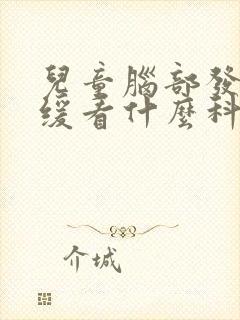 兒童腦部發
緩看什麼科
介城